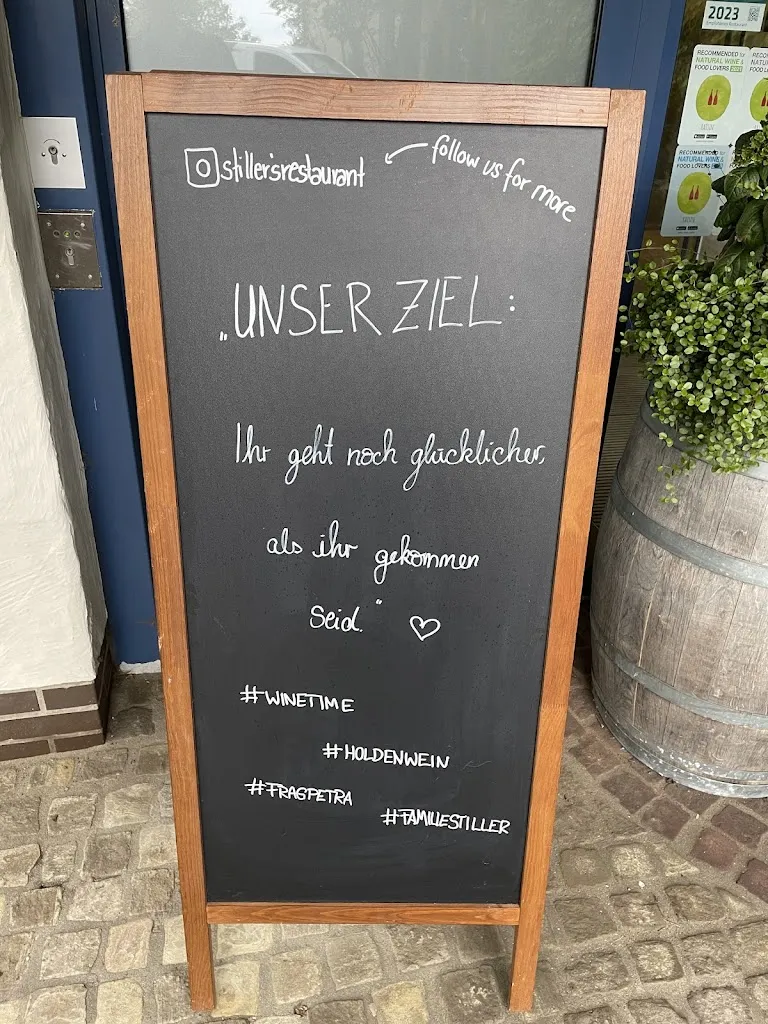 stillersrestaurant
follow us for more
„UNSER ZIEL:
Ihr geht noch glücklicher,
als ihr gekommen
seid." ♡
#WINETIME
#HOLDENWEIN
#FRAGPETRA
#FAMILIESTILLER
2023
RECOMMENDED for
NATURAL WINE &
FOOD LOVERS
RAISIN
RECOMMENDED
NATURAL WINE &
FOOD LOVERS
RAISIN